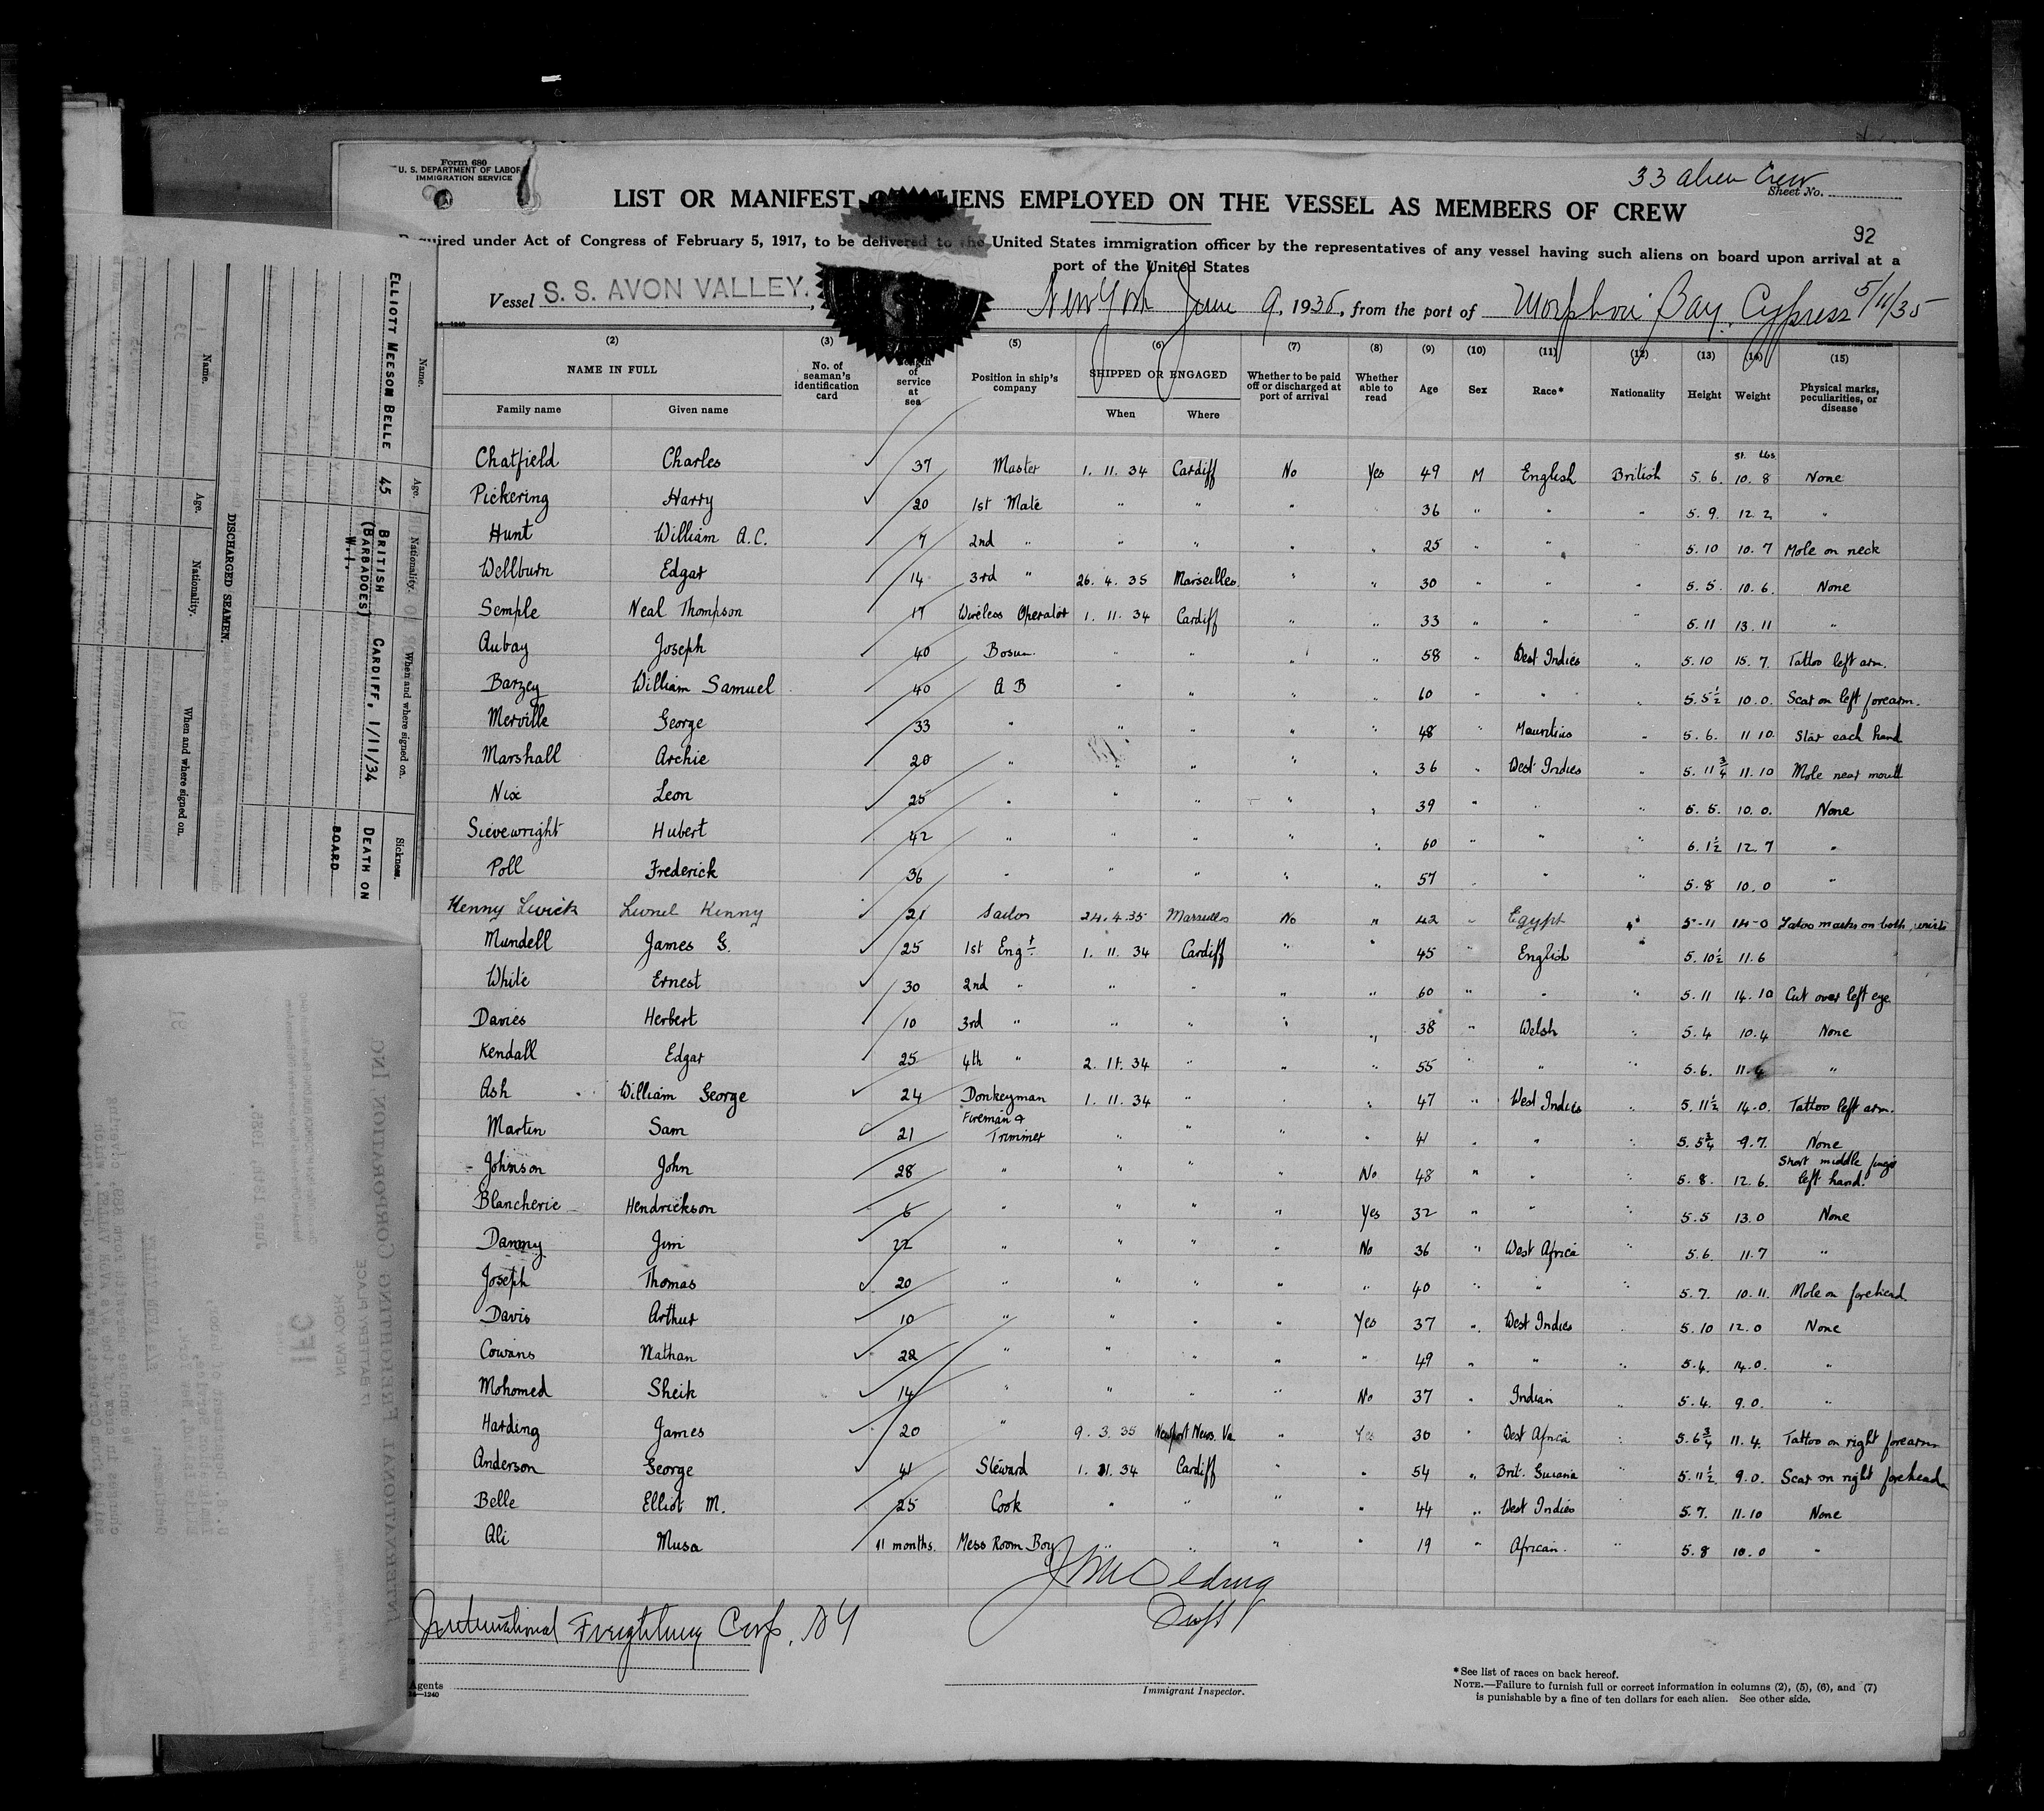 Form 680
U. S. DEPARTMENT OF LABOR
IMMIGRATION SERVICE
33 alien Crew
Sheet No.
LIST OR MANIFEST ALIENS EMPLOYED ON THE VESSEL AS MEMBERS OF CREW
92
Required under Act of Congress of February 5, 1917, to be delivered to the United States immigration officer by the representatives of any vessel having such aliens on board upon arrival at a
port of the United States
Vessel S. S. AVON VALLEY. New York June 9, 1935, from the port of Morphou Bay, Cypress 5/11/35
14—1240
(2) (3) (5) (6) (7) (8) (9) (10) (11) (12) (13) (14) (15)
NAME IN FULL No. of seaman's identification card Length of service at sea Position in ship's company SHIPPED OR ENGAGED Whether to be paid off or discharged at port of arrival Whether able to read Age Sex Race* Nationality Height Weight Physical marks, peculiarities, or disease
Family name Given name When Where
St. Lbs
Chatfield Charles 37 Master 1. 11. 34 Cardiff No Yes 49 M English British 5. 6. 10. 8 None
Pickering Harry 20 1st Mate " " " 36 " " " 5. 9. 12. 2. "
Hunt William A.C. 7 2nd " " " " " 25 " " " 5. 10 10. 7 Mole on neck
Wellburn Edgar 14 3rd " 26. 4. 35 Marseilles. " " 30 " " " 5. 5. 10. 6. None
Semple Neal Thompson 17 Wireless Operator 1. 11. 34 Cardiff " " 33 " " " 5. 11 13. 11 "
Aubay Joseph 40 Bosun " " " " 58 " West Indies " 5. 10 15. 7. Tattoo left arm.
Barzey William Samuel 40 A B " " " " 60 " " " 5. 5½ 10. 0. Scar on left forearm.
Merville George 33 " " " " " 48 " Mauritius " 5. 6. 11 10. Star each hand
Marshall Archie 20 " " " " " 36 " West Indies " 5. 11¾ 11. 10 Mole near mouth
Nix Leon 25 " " " " " 39 " " " 5. 5. 10. 0. None
Sievewright Hubert 42 " " " " " 60 " " " 6. 1½ 12. 7 "
Poll Frederick 36 " " " " " 57 " " " 5. 8 10. 0 "
Kenny Lionel Kenny 21 Sailor 24. 4. 35 Marseilles No " 42 " Egypt " 5-11 14-0 Tatoo marks on both wrists
Mundell James G. 25 1st Engr 1. 11. 34 Cardiff " " 45 English 5. 10½ 11. 6
White Ernest 30 2nd " " " " " 60 " " " 5. 11 14. 10 Cut over left eye
Davies Herbert 10 3rd " " " " " 38 " Welsh " 5. 4 10. 4 None
Kendall Edgar 25 4th " 2. 11. 34 " " " 55 " " " 5. 6. 11. 4 "
Ash William George 24 Donkeyman 1. 11. 34 " " " 47 " West Indies " 5. 11½ 14. 0. Tattoo left arm.
Martin Sam 21 Fireman & Trimmer " " " " 41 " " " 5. 5¾ 9. 7. None
Johnson John 28 " " " " No 48 " " " 5. 8. 12. 6. Short middle finger left hand.
Blancherie Hendrickson 6 " " " " Yes 32 " " " 5. 5 13. 0 None
Danny Jim 22 " " " " No 36 " West Africa " 5. 6. 11. 7 "
Joseph Thomas 20 " " " " " 40 " " " 5. 7. 10. 11. Mole on forehead
Davis Arthur 10 " " " " Yes 37 " West Indies 5. 10 12. 0 None
Cowans Nathan 28 " " " " " 49 " " " 5. 4. 14. 0. "
Mohomed Sheik 14 " " " " No 37 " Indian " 5. 4. 9. 0. "
Harding James 20 " 9. 3. 35 Newport News. Va " Yes 30 " West Africa " 5. 6¾ 11. 4. Tattoo on right forearm
Anderson George 41 Steward 1. 11. 34 Cardiff " " 54 " Brit. Guiana " 5. 11½ 9. 0. Scar on right forehead
Belle Elliot M. 25 Cook " " " " 44 " West Indies " 5. 7. 11. 10 None
Ali Musa 11 months. Mess Room Boy " " " " 19 " African. " 5. 8 10. 0 "
International Freighting Corp. N Y
Agents
14—1240
Immigrant Inspector.
*See list of races on back hereof.
NOTE.—Failure to furnish full or correct information in columns (2), (5), (6), and (7)
is punishable by a fine of ten dollars for each alien. See other side.
Name. Age. Nationality. When and where signed on. Sickness.
ELLIOTT MEESOM BELLE 45 BRITISH (BARBADOES) W.I. CARDIFF, 1/11/34 DEATH ON BOARD
DISCHARGED SEAMEN.
Name. Age. Nationality. When and where signed on.
INTERNATIONAL FREIGHTING CORPORATION INC
17 BATTERY PLACE
NEW YORK
IFC
June 13th, 1935.